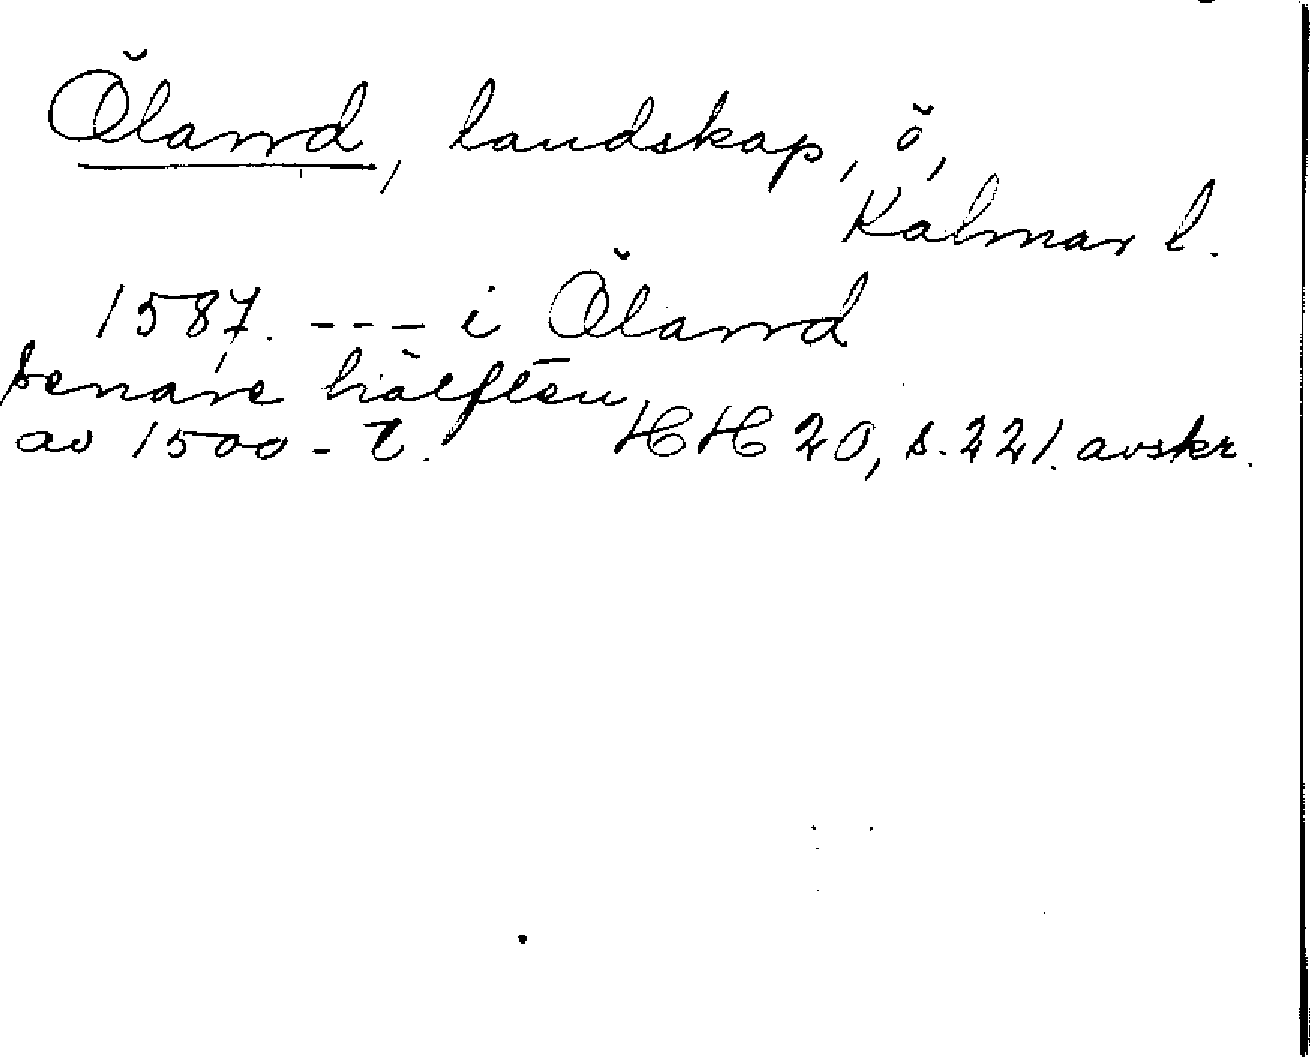 Öland, landskap, ö,
Kalmar l.
1587. --- i Öland
senare hälften
av 1500-t. HH 20, s. 221. avskr.